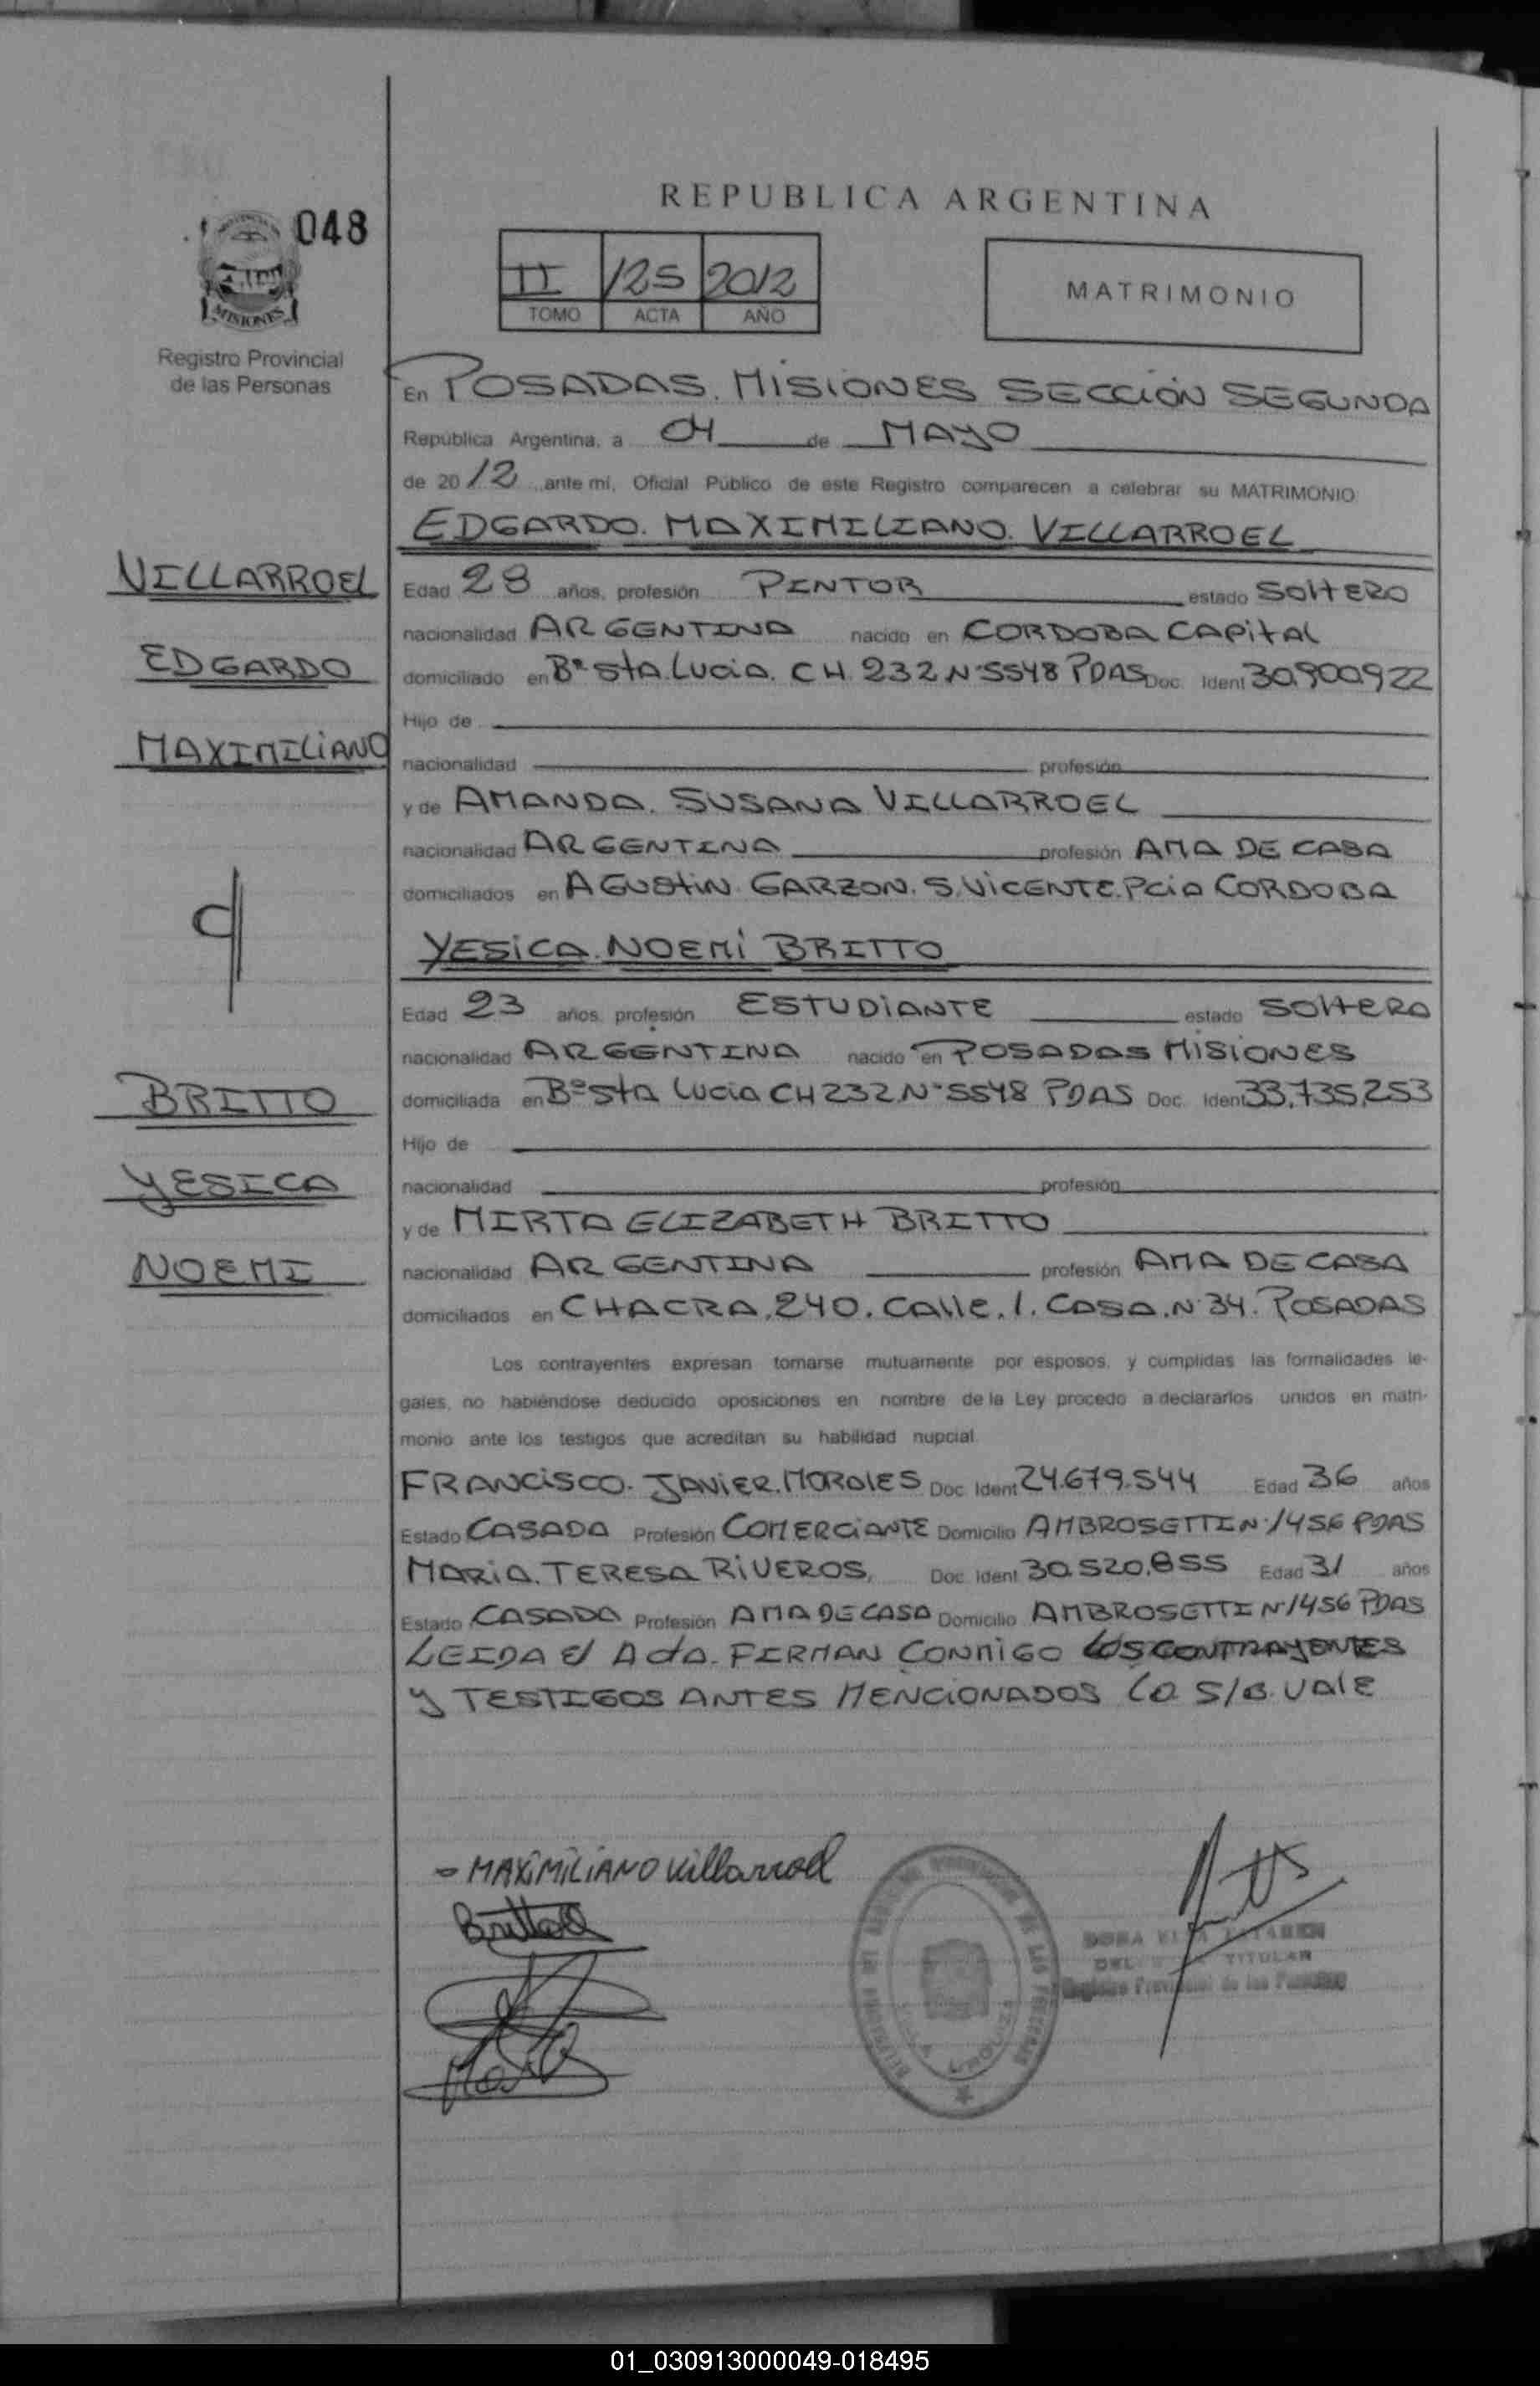 REPUBLICA ARGENTINA
048
II 125 2012
TOMO ACTA AÑO
MATRIMONIO
MISIONES
Registro Provincial
de las Personas
En POSADAS. MISIONES SECCIÓN SEGUNDA
República Argentina, a 04 de MAYO
de 2012 ante mí, Oficial Público de este Registro comparecen a celebrar su MATRIMONIO
EDGARDO. MAXIMILIANO. VILLARROEL
VILLARROEL
EDGARDO
MAXIMILIANO
Edad 28 años, profesión PINTOR estado SOLTERO
nacionalidad ARGENTINA nacido en CORDOBA CAPITAL
domiciliado en Bº Sta. Lucia. CH 232 Nº 5548 PDAS Doc. Ident 30.900.922
Hijo de
nacionalidad profesión
y de AMANDA. SUSANA VILLARROEL
nacionalidad ARGENTINA profesión AMA DE CASA
domiciliados en AGUSTIN. GARZON. S. VICENTE. Pcia CORDOBA
y
YESICA. NOEMÍ BRITTO
BRITTO
YESICA
NOEMI
Edad 23 años profesión ESTUDIANTE estado SOLTERA
nacionalidad ARGENTINA nacido en POSADAS MISIONES
domiciliada en Bº Sta Lucia CH 232 Nº 5548 PDAS Doc. Ident 33.735.253
Hijo de
nacionalidad profesión
y de MIRTA ELIZABETH BRITTO
nacionalidad ARGENTINA profesión AMA DE CASA
domiciliados en CHACRA. 240. CALLE. 1. CASA. Nº 34. POSADAS
Los contrayentes expresan tomarse mutuamente por esposos, y cumplidas las formalidades le-
gales, no habiéndose deducido oposiciones en nombre de la Ley procedo a declararlos unidos en matri-
monio ante los testigos que acreditan su habilidad nupcial.
FRANCISCO. JAVIER. MORALES Doc. Ident 24.679.544 Edad 36 años
Estado CASADA Profesión COMERCIANTE Domicilio AMBROSETTI Nº 1456 PDAS
MARIA. TERESA RIVEROS, Doc. Ident 30.520.855 Edad 31 años
Estado CASADA Profesión AMA DE CASA Domicilio AMBROSETTI Nº 1456 PDAS
LEIDA El Acta. FIRMAN CONMIGO LOS CONTRAYENTES
Y TESTIGOS ANTES MENCIONADOS LO S/B. VALE
- MAXIMILIANO Villarroel
Britto
TITULAR
Registro Provincial de las Personas
01_030913000049-018495